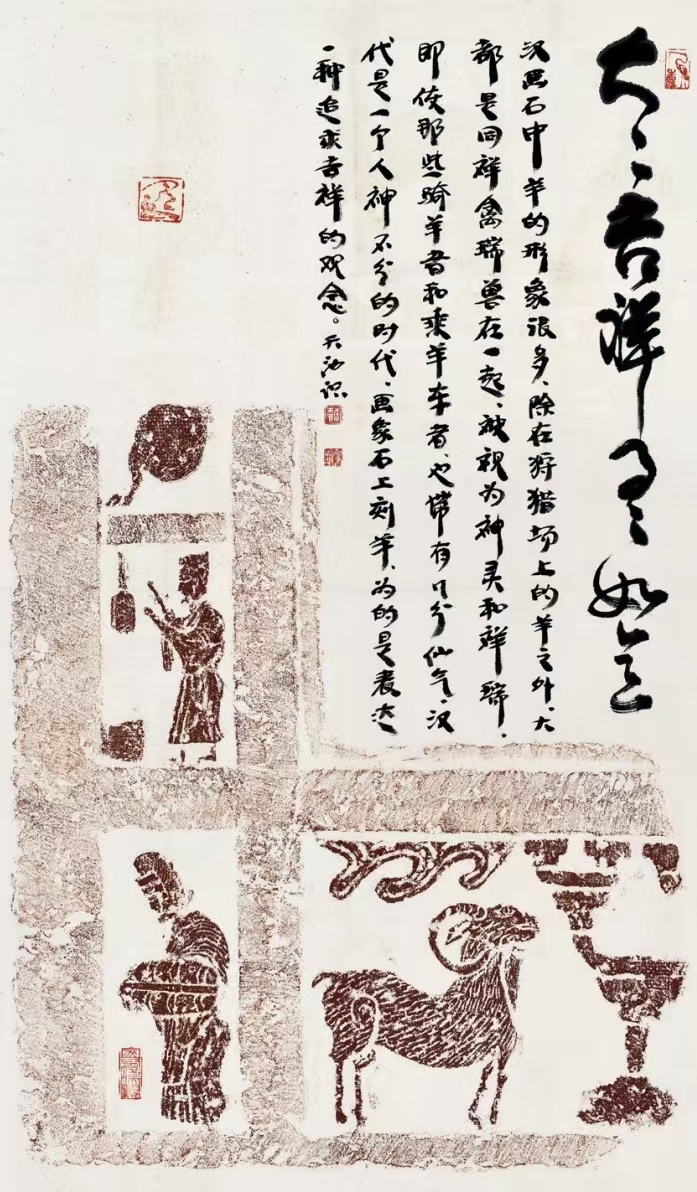 大〻吉祥事〻如意
汉画石中羊的形象很多、除在狩猎场上的羊之外、大
都是同祥禽瑞兽在一起、被视为神灵和祥瑞、
即使那些骑羊者和乘羊车者、也常有几分仙气、汉
代是一个人神不分的时代、画象石上刻羊、为的是表达
一种追求吉祥的观念。天池识